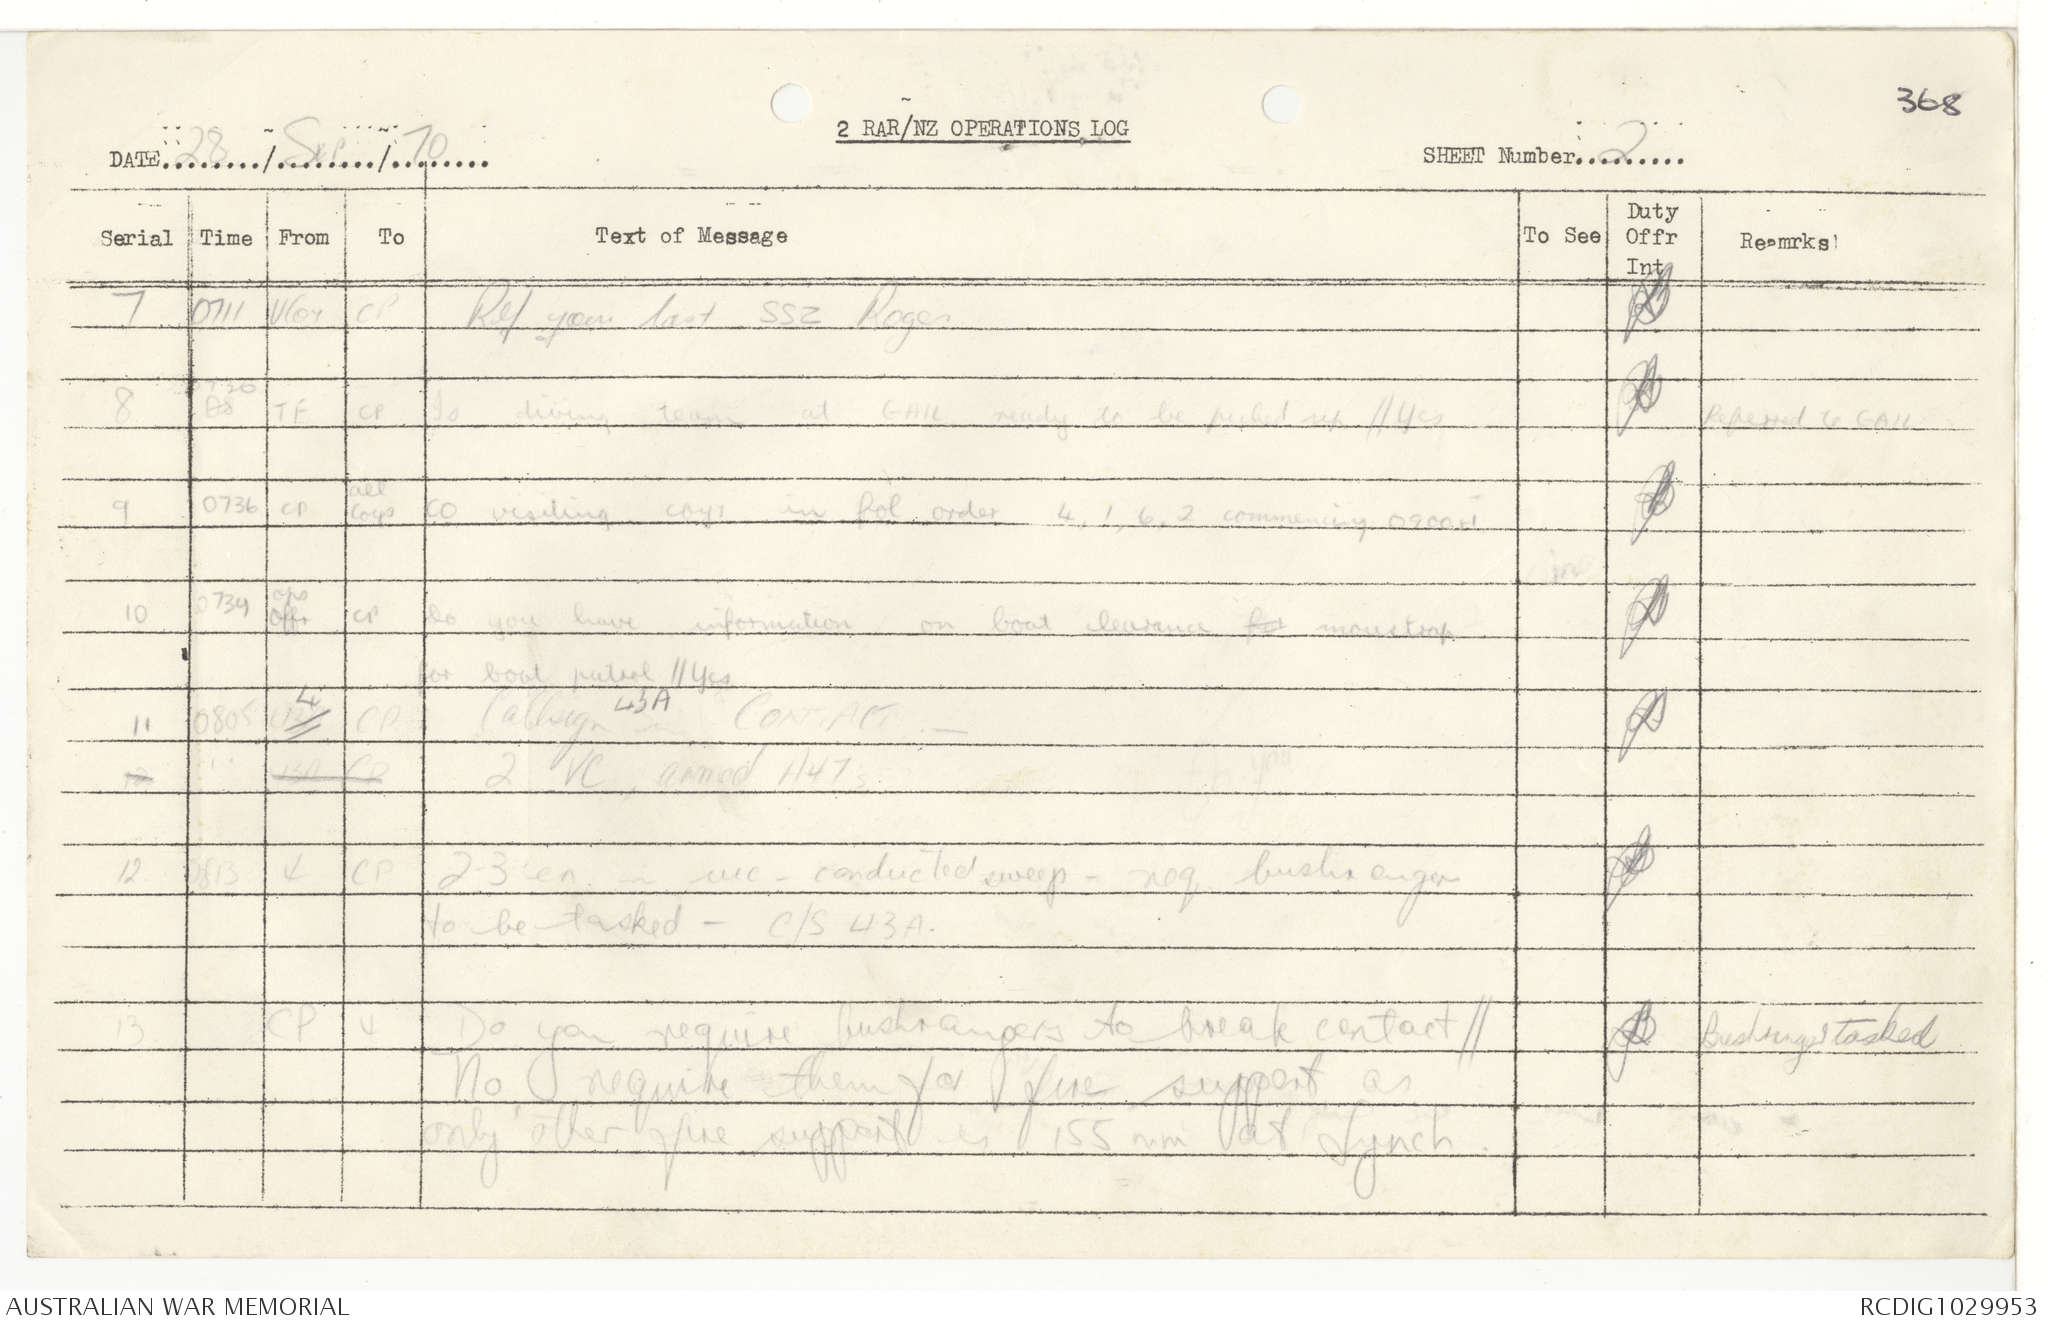 368
2 RAR/NZ OPERATIONS LOG
DATE 28 / Sep / 70
SHEET Number 2
Serial Time From To Text of Message To See Duty Offr Int Remrks
7 0711 CP Ref your last SSZ Roger
8 0730 TF CP Is diving team at GAIL ready to be picked up // Yes Referred to GAIL
9 0736 CP all Coys CO visiting coys in fol order 4, 1, 6, 2 commencing 0900H
10 0739 Ops Offr CP Do you have information on boat clearance for moustrap
for boat patrol // Yes
11 0805 4 CP Callsign 43A in CONTACT
12 " CP 2 VC, armed AK47s
12 0813 4 CP 2-3 en. in - conducted sweep - req bushranger
to be tasked - C/S 43A.
13 CP 4 Do you require bushrangers to break contact // Bushrangers tasked
No require them for fire support as
only other fire support is 155 mm at Lynch.
AUSTRALIAN WAR MEMORIAL
RCDIG1029953